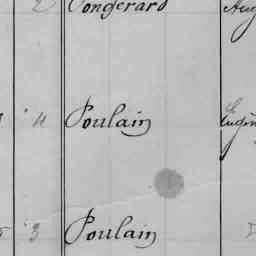 2 Pongerard
4 Poulain Eugèn
3 Poulain